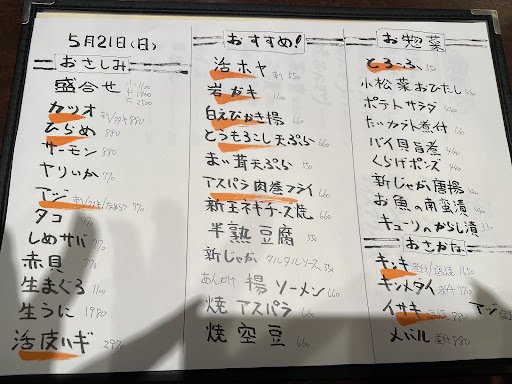 5月21日(日)
おさしみ
盛合せ 小 1100 中 1800 大 2500
カツオ 刺/タタキ 880
ひらめ 880
サーモン 880
ヤリいか 770
アジ 刺/タタキ/なめろう 770
タコ
しめサバ 770
赤貝 770
生まぐろ 1100
生うに 1980
活皮ハギ 2970
おすすめ!
活ホヤ 刺 550
岩ガキ 1100
白えびかき揚 660
とうもろこし天ぷら 660
まい茸天ぷら 550
アスパラ肉巻フライ 660
新玉ネギチーズ焼 660
半熟豆腐 550
新じゃが タルタルソース 550
あんかけ 揚ソーメン 660
焼アスパラ 660
焼空豆 660
お惣菜
とろろーふ 550
小松菜おひたし
ポテトサラダ
たいカブト煮付
バイ貝旨煮
くらげポンズ
新じゃが唐揚
お魚の南蛮漬
キューリのからし漬
おさかな
キンキ 煮付/塩焼 1650
キンメダイ 煮付 770
イサキ 塩焼 880 アジ
メバル 煮付 880